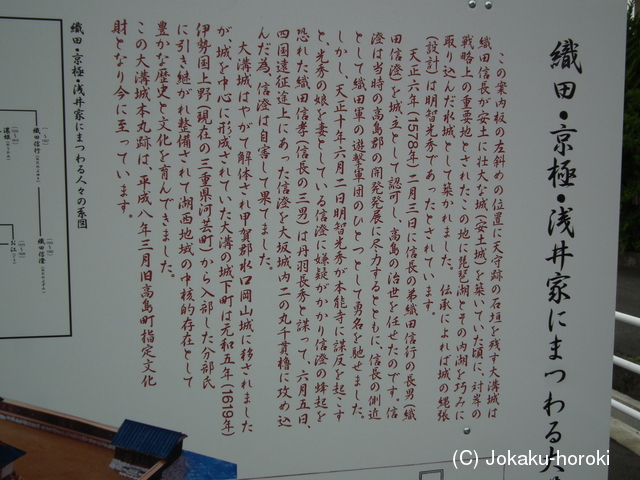 織田・京極・浅井家にまつわる大
この案内板の左斜めの位置に天守跡の石垣を残す大溝城は
織田信長が安土に壮大な城(安土城)を築いていた頃に、対岸の
戦略上の重要地とされたこの地に琵琶湖とその内湖を巧みに
取り込んだ水城として築かれました。伝承によれば城の縄張
(設計)は明智光秀であったとされています。
天正六年(1578年)二月三日に信長の弟織田信行の長男(織
田信澄)を城主として認可し、高島の治世を任せたのです。信
澄は当時の高島郡の開発発展に尽力するとともに、信長の側近
として織田軍の遊撃軍団のひとつとして勇名を馳せました。
しかし、天正十年六月二日明智光秀が本能寺に謀反を起こす
と、光秀の娘を妻としている信澄に嫌疑がかかり信澄の蜂起を
恐れた織田信孝(信長の三男)は丹羽長秀と謀って、六月五日、
四国遠征途上にあった信澄を大坂城内二の丸千貫櫓に攻め込
んだ為、信澄は自害して果てました。
大溝城はやがて解体され甲賀郡水口岡山城に移されました
が、城を中心に形成されていた大溝の城下町は元和五年(1619年)
伊勢国上野(現在の三重県河芸町)から入部した分部氏
に引き継がれ整備されて湖西地域の中核的存在として
豊かな歴史と文化を育んできました。
この大溝城本丸跡は、平成八年三月旧高島町指定文化
財となり今に至っています。
織田・京極・浅井家にまつわる人々の系図
織田信行
織田信澄
濃姫
お江
(C) Jokaku-horoki